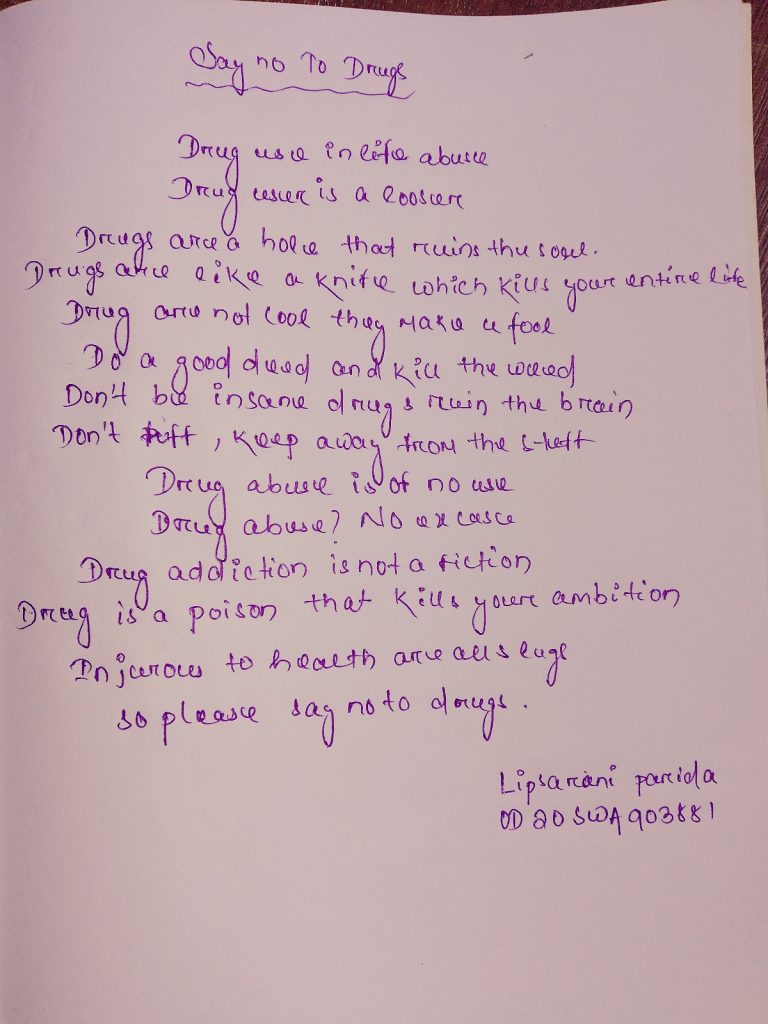 Say no To Drugs
Drug use in life abuse
Drug user is a looser
Drugs are a hole that ruins the soul.
Drugs are like a knife which kills your entire life
Drug are not cool they make u fool
Do a good deed and kill the weed
Don't be insane drugs ruin the brain
Don't , keep away from the stuff
Drug abuse is of no use
Drug abuse? No excuse
Drug addiction is not a fiction
Drug is a poison that kills your ambition
Injurous to health are all
so please say no to drugs.
Lipsarani parida
OD20SWA903881